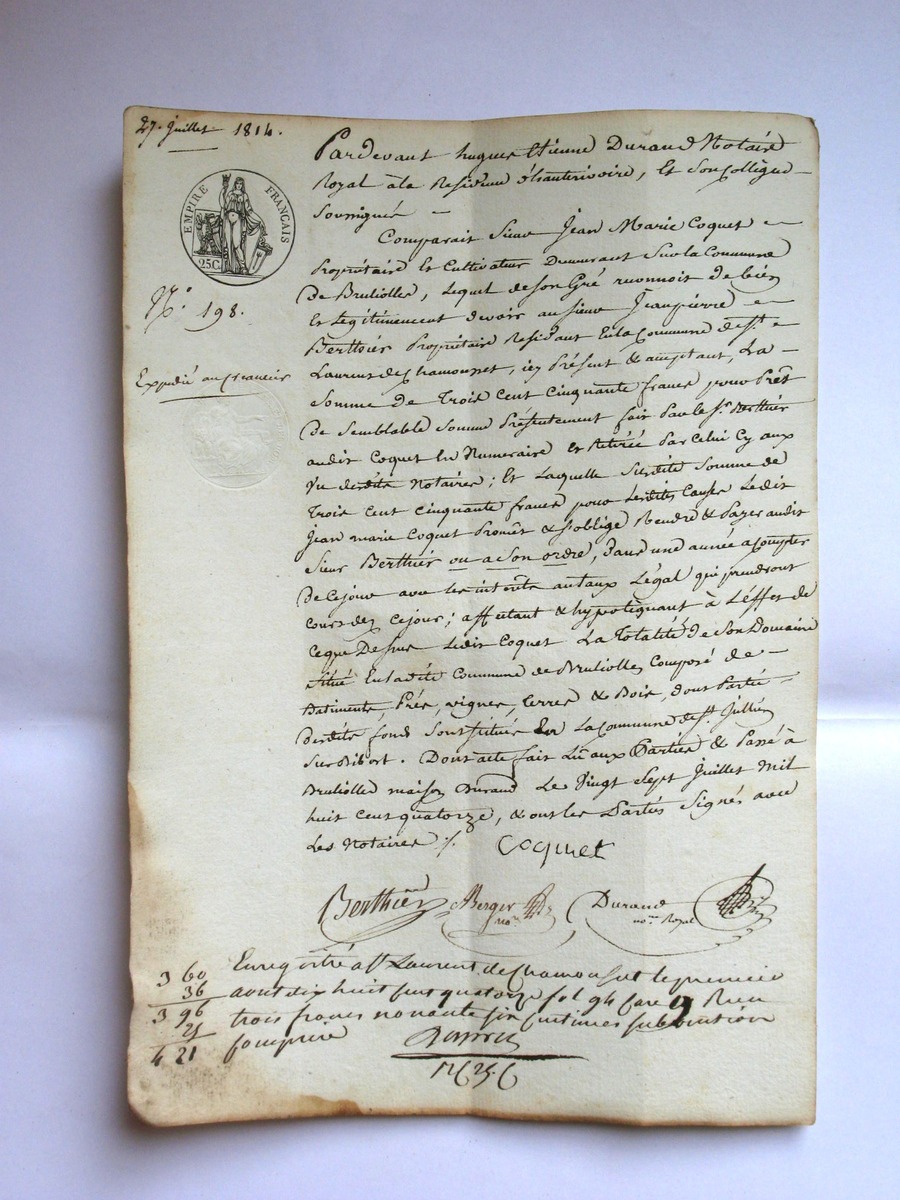 27. Juillet 1814.
EMPIRE FRANÇAIS
25 C.
N.° 198.
Expédié au créancier
Pardevant hugues Etienne Durand Notaire
Royal à la Residence d'hauterivoire, Et Son Collègue
Soussignés
Comparait Sieur Jean Marie Coquet
Propriétaire Et Cultivateur Demeurant Sur la Commune
De Brulliolles, Lequel de Son Gré reconnoit de bien
Et Legitimement devoir au Sieur Jeanpierre
Berthier Propriétaire Résidant En la Commune de S.t
Laurent de Chamousset, icy Présent & acceptant, La
Somme De Trois Cent Cinquante francs pour Prêt
De Semblable Somme Présentement fait Par le S.r Berthier
audit Coquet En Numeraire Et Retirée Par Celui Cy aux
Vu desdits Notaires ; Et Laquelle Susdite Somme de
Trois Cent Cinquante francs pour Lesdites Causes Ledit
Jean marie Coquet Promêt & S'oblige Rendre & Payer audit
Sieur Berthier ou a Son ordre, Dans une année a Compter
De Cejour avec les interêts au taux Légal qui prendront
Cours dez Cejour ; affectant & hypotéquant à L'éffet de
Ceque Dessus Ledit Coquet La Totalité de Son Domaine
Situé En ladite Commune de Brulliolles Composé de
Batiments, Prés, vignes, terres & Bois, dont Partie
desdits fonds Sont Situés Sur La Commune de S.t Jullien
Sur Bibort. Dont acte fait Lu aux Parties & Passé à
Brulliolles maison Durand Le Vingt Sept Juillet Mil
huit Cent quatorze, & ont les Parties Signés avec
Les Notaires ./.
Coquet
Berthier Berger no.re Durand no.re Royal
Enregistré a St Laurent de Chamousset le premier
aout dix huit cent quatorze fol 94 Case 9 Reçu
trois francs nonante six centimes subvention
comprise
3 60
36
3 96
25
4 21